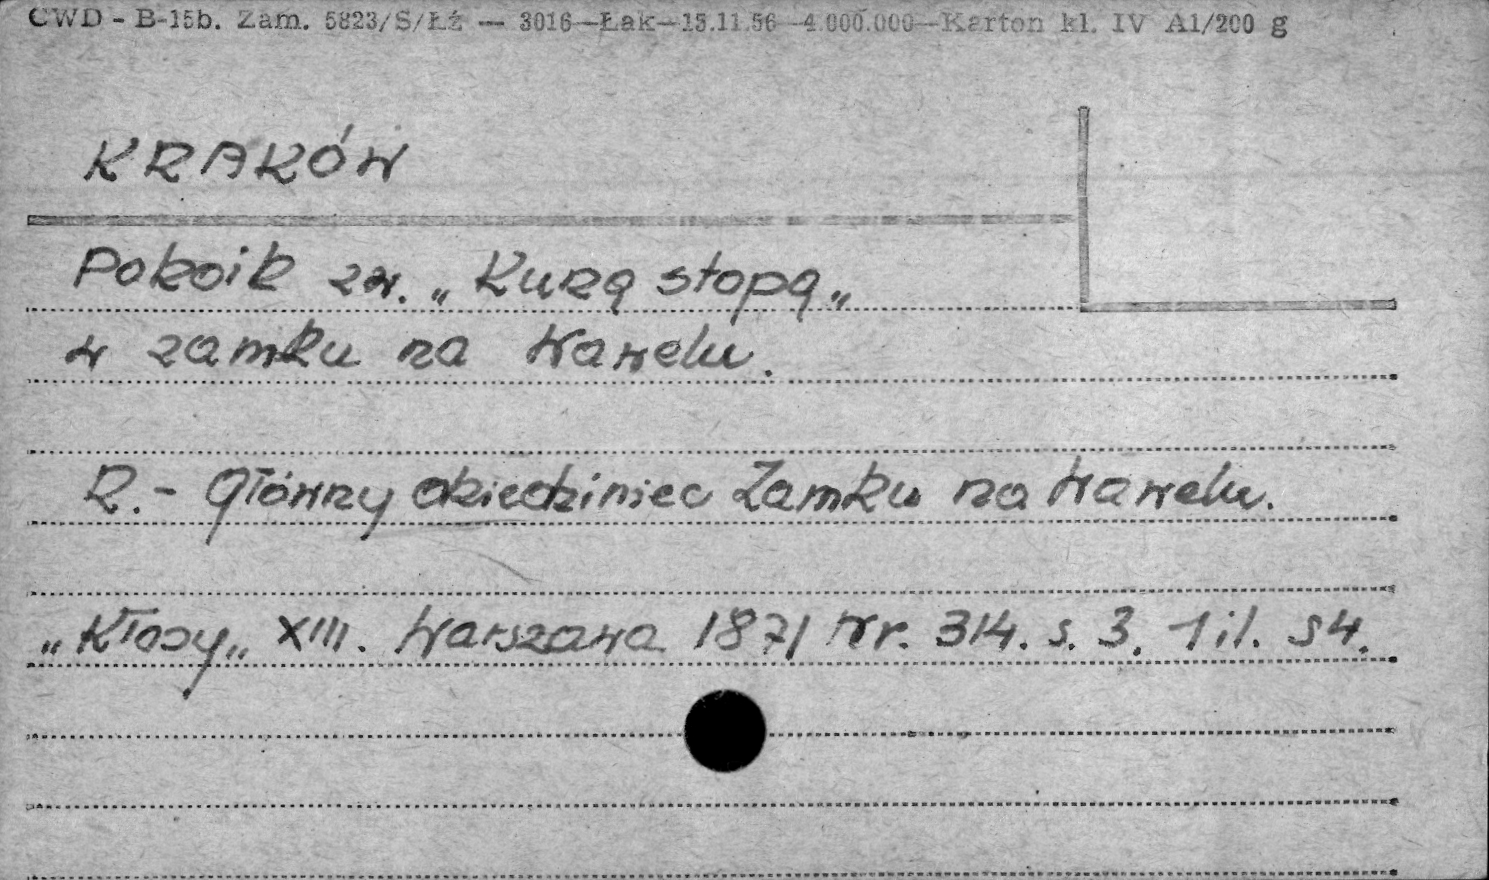 CWD - B-15b. Zam. 5823/S/Łź — 3016—Łak—15.11.56—4.000.000—Karton kl. IV A1/200 g
KRAKÓW
Pokoik zw. „Kurzą stopą„
w zamku na Wawelu.
R. - Główny dziedziniec Zamku na Wawelu.
„Kłosy„ XIII. Warszawa 1871 Nr. 314. s. 3. 1 il. s 4.